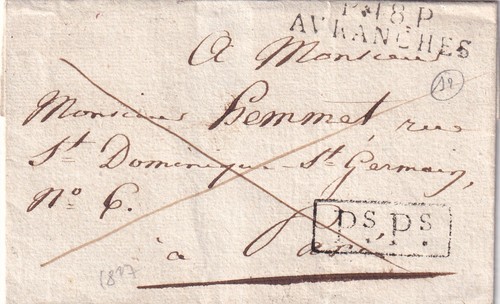 P.18.P
AVRANCHES
A Monsieur
12
Monsieur hemmet, rue
St Dominique - St Germain,
No 6.
DS, DS
à Paris
1817